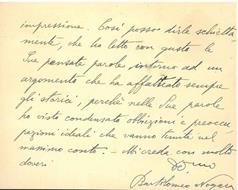 impressione. Così posso dirle schietta
mente, che ho letto con gusto le
Sue pensate parole intorno ad un
argomento che ha affaticato sempre
gli storici, perchè nelle Sue parole
ho visto condensate obiezioni e preoccu
pazioni ideali che vanno tenute nel
massimo conto. - Mi creda con molto
doveri
Bartolomeo Nogara